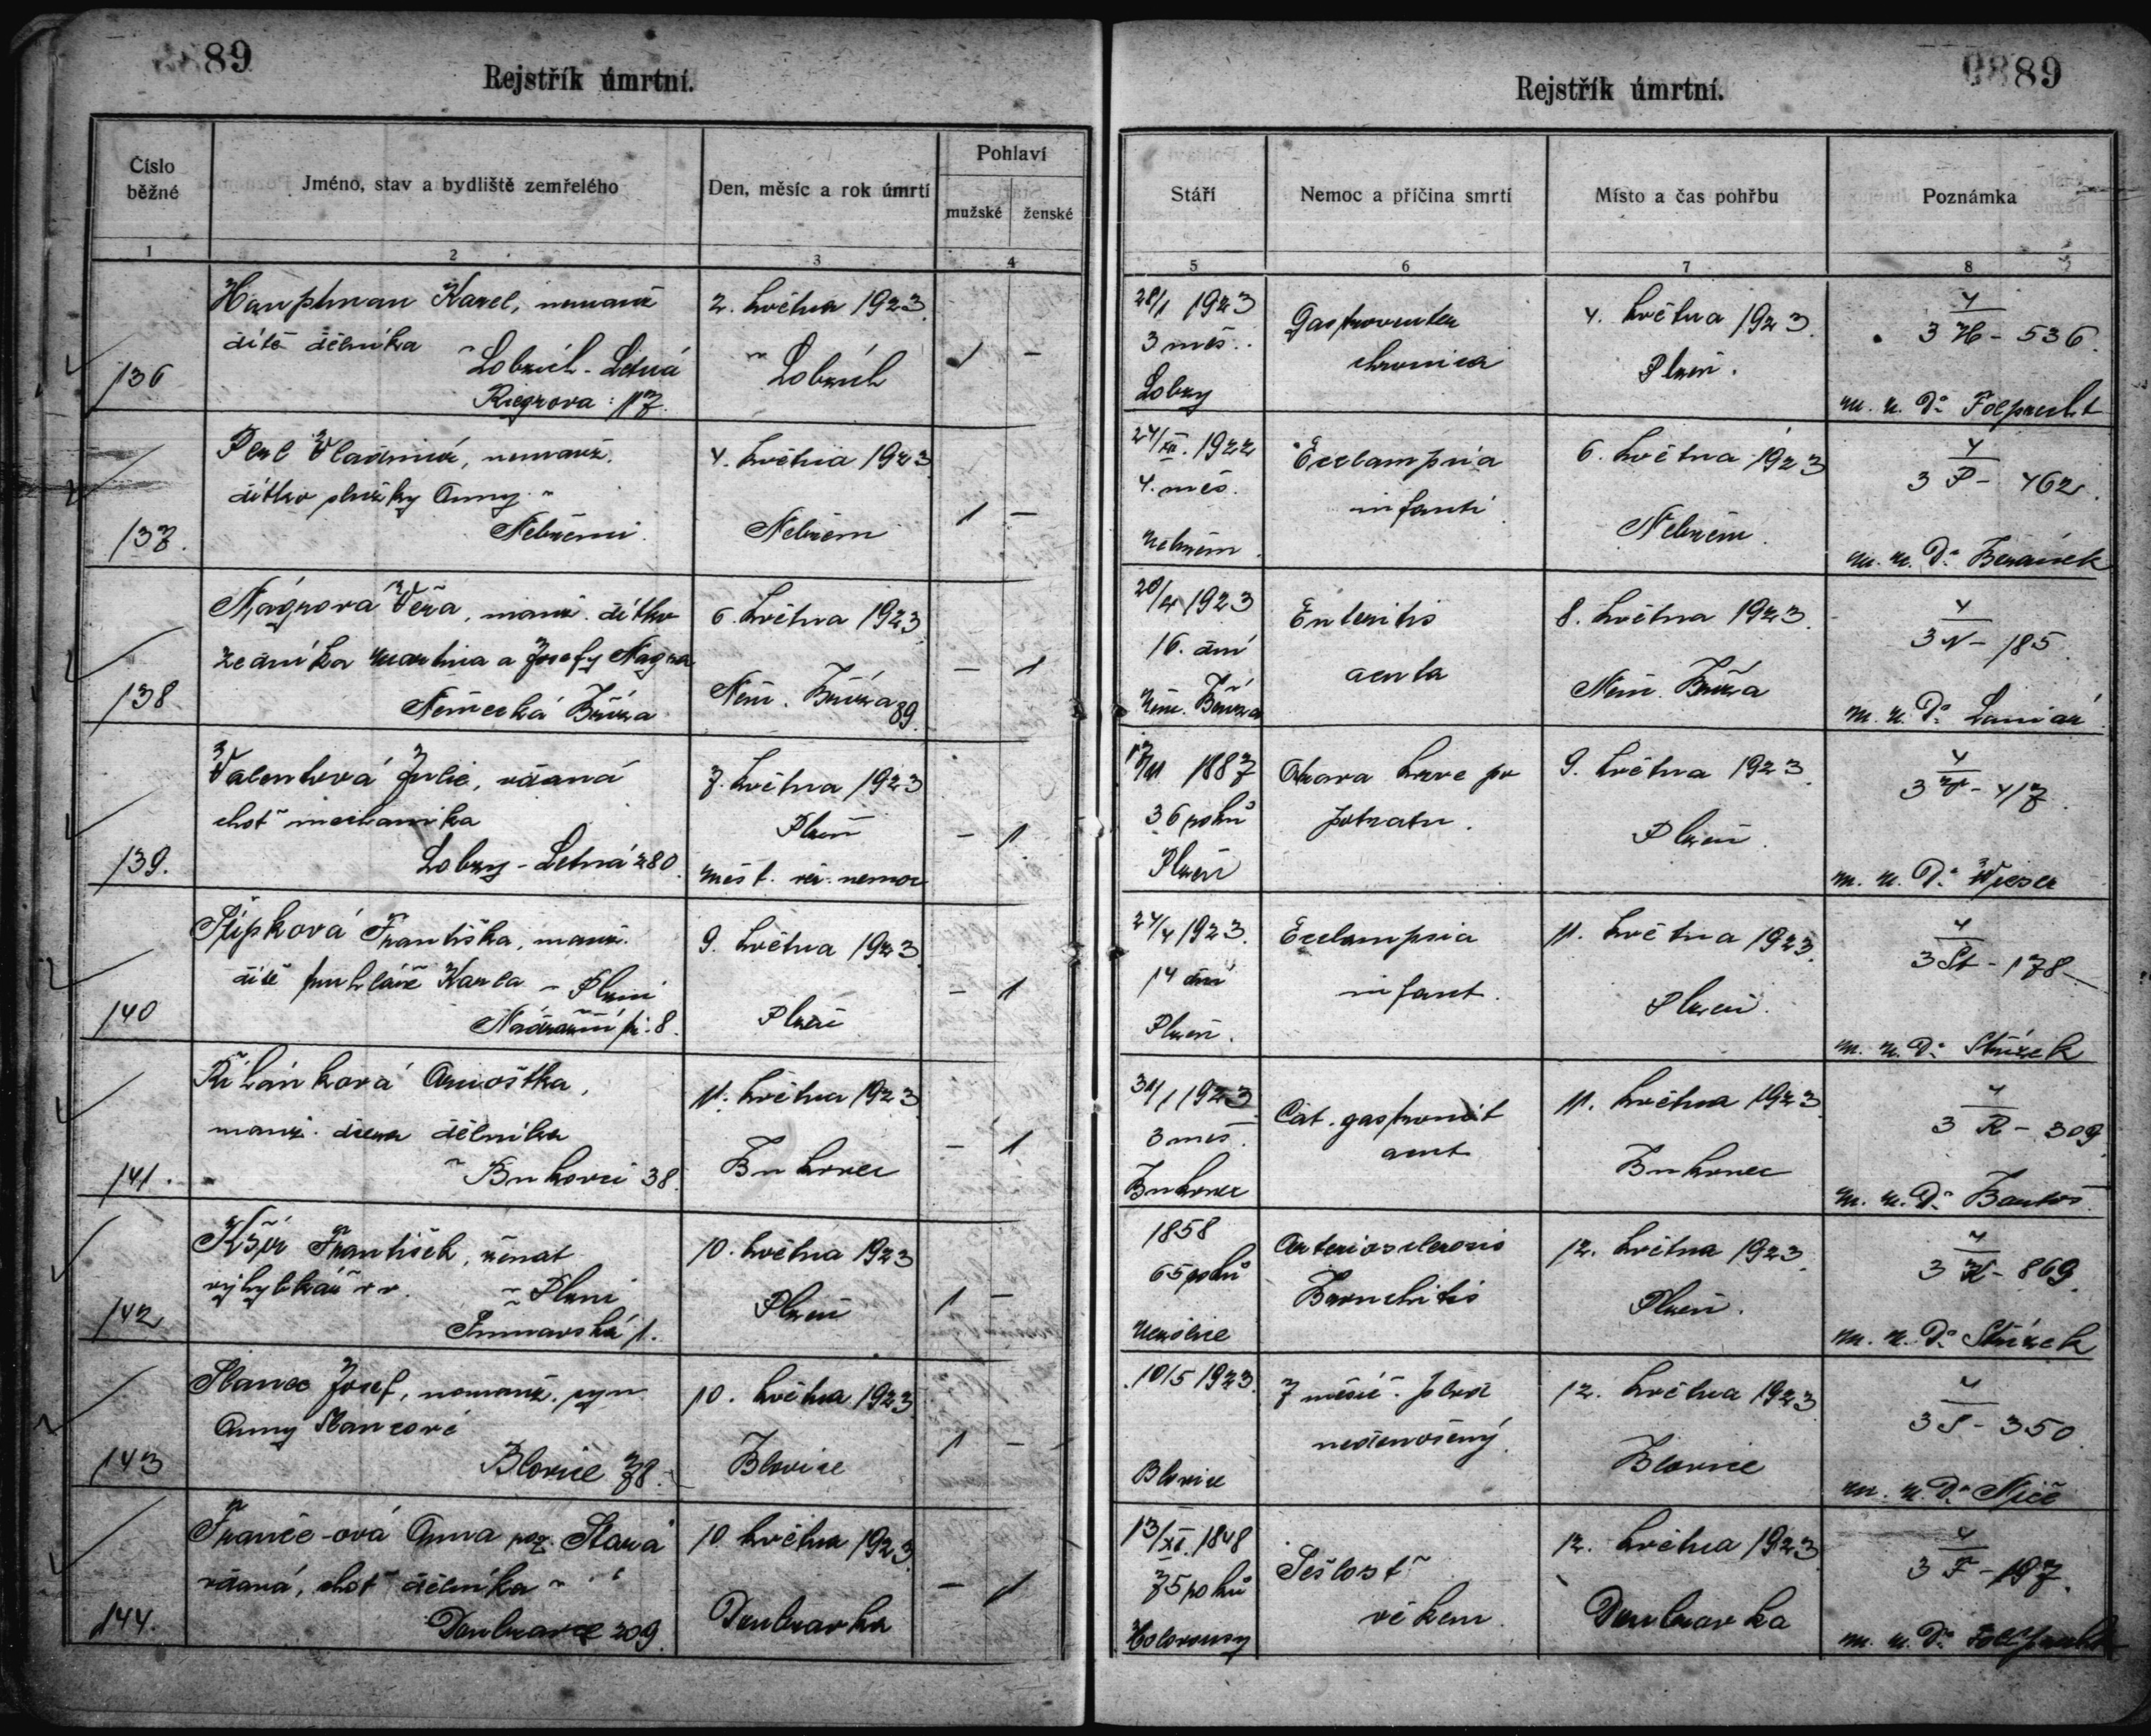 89
Rejstřík úmrtní.
Číslo běžné
Jméno, stav a bydliště zemřelého
Den, měsíc a rok úmrtí
Pohlaví
mužské
ženské
1
2
3
4
136
Hauptman Karel, nemanž
dítě dělníka
Lobzích - Letná
Riegrova : 17.
2. května 1923.
Lobzích
1 –
137.
Perl Vladimír, nemanž.
dítko služky Anny
Nebřemi.
4. května 1923
Nebřem
1 –
138
Nágrova Věra, manž. dítko
zedníka Martina a Josefy Nágra
Německá Bříza
6. května 1923
Něm. Bříza 89.
– 1
139.
Valentová Julie, vdaná
choť mechanika
Lobzy - Letná 280.
7. května 1923
Plzeň
měst. nemoc
– 1
140
Šlípková Františka, manž.
dítě truhláře Karla – Plzni
Nádražní tř. 8.
9. května 1923
Plzeň
– 1
141.
Řihánková Arnoštka,
manž. dcera dělníka
Bukovci 38.
11. května 1923
Bukovec
– 1
142
Kšír František, ženat
výhybkář v v. – Plzni
1.
10. května 1923
Plzeň
1 –
143
Stanec Josef, nemanž. syn
Anny Stancové
Blovice 78.
10. května 1923
Blovice
1 –
144.
Franče-ová Anna roz. Stará
vdaná, choť dělníka
Doubravce 209.
10 května 1923
Doubravka
– 1
89
Rejstřík úmrtní.
Stáří
Nemoc a příčina smrti
Místo a čas pohřbu
Poznámka
5
6
7
8
28/1 1923
3 měs.
Lobzy
Gastroenter
chronica
4. května 1923.
Plzeň.
4
3 H - 536.
m. u. Dr. Folprecht
24/XII. 1922
4. měs.
Nebřem.
Eclampsia
infanti
6. května 1923
Nebřem.
4
3 P - 462.
m. u. Dr. Beránek
20/4 1923
16. dní
Něm. Bříza
Enteritis
acuta
8. května 1923.
Něm. Bříza
4
3 N - 185.
m. u. Dr.
17/11 1887
36 roků
Plzeň
Otrava krve po
potratu.
9. května 1923.
Plzeň.
4
3 V - 417.
m. u. Dr. Wieser
24/4 1923.
14 dní
Plzeň.
Eclampsia
infant.
11. května 1923.
Plzeň.
4
3 Št - 178
m. u. Dr. Střízek
31/1 1923
3 měs.
Bukovec
Cat. gastroint
acut
11. května 1923.
Bukovec
4
3 R - 309
m. u. Dr. Bartoš
1858
65 roků
Arteriosclerosis
Bronchitis
12. května 1923.
Plzeň.
4
3 K - 869.
m. u. Dr. Střízek
10/5 1923.
Blovice
7 měsíč. plod
nedonošený.
12. května 1923
Blovice
4
3 S - 350.
m. u. Dr.
13/XI. 1848
75 roků
Holovousy
Sešlosť
věkem.
12. května 1923
Doubravka
4
3 F - 197.
m. u. Dr. Folprecht